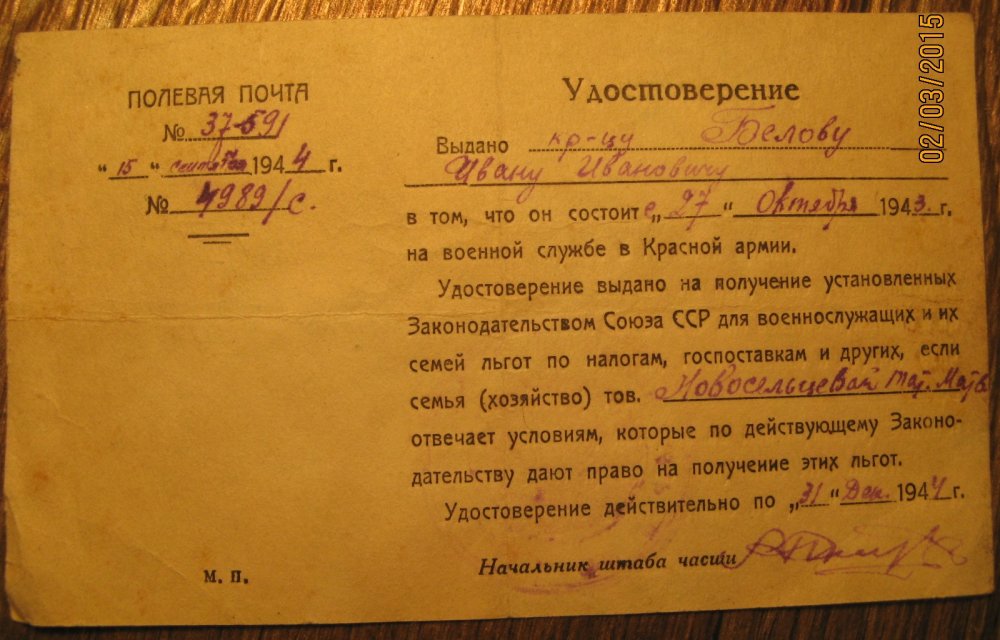 ПОЛЕВАЯ ПОЧТА
№ 37591
"15" сентября 1944 г.
№ 4989/с.
М. П.
Удостоверение
Выдано кр-цу Белову
Ивану Ивановичу
в том, что он состоит с „27" Октября 1943 г.
на военной службе в Красной армии.
Удостоверение выдано на получение установленных
Законодательством Союза ССР для военнослужащих и их
семей льгот по налогам, госпоставкам и других, если
семья (хозяйство) тов. Новосельцевой Тат. Матв
отвечает условиям, которые по действующему Законо-
дательству дают право на получение этих льгот.
Удостоверение действительно по „31" Дек. 1944 г.
Начальник штаба части
02/03/2015